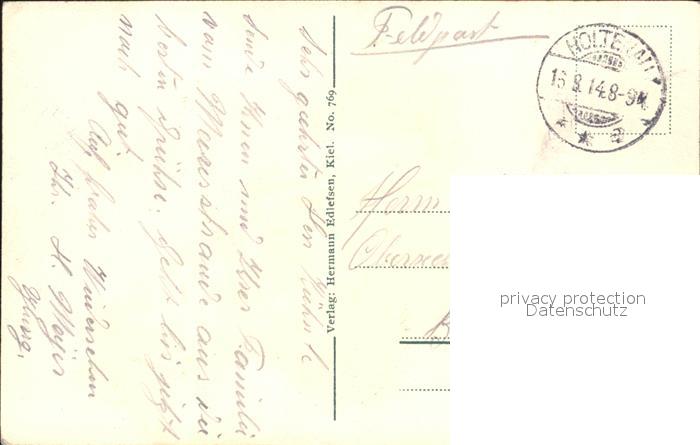 Feldpost
HOLTENAU
16.8.14.8-9N.
Herrn
Verlag: Hermann Edlefsen, Kiel. No. 769
Sehr geehrter Herr
sende Ihnen und Ihrer Familie
vom Meeresstrande aus die
besten Grüße. Geht bis jetzt
noch gut.
Auf frohes Wiedersehen
Ihr. H. Mayer
privacy protection
Datenschutz